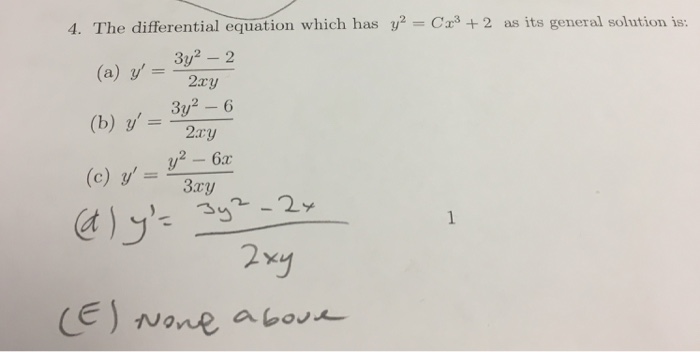 4. The differential equation which has y² = Cx³ + 2 as its general solution is:
(a) y′ = (3y² − 2)/(2xy)
(b) y′ = (3y² − 6)/(2xy)
(c) y′ = (y² − 6x)/(3xy)
(d) y′ = (3y² − 2x)/(2xy)
1
(E) None above